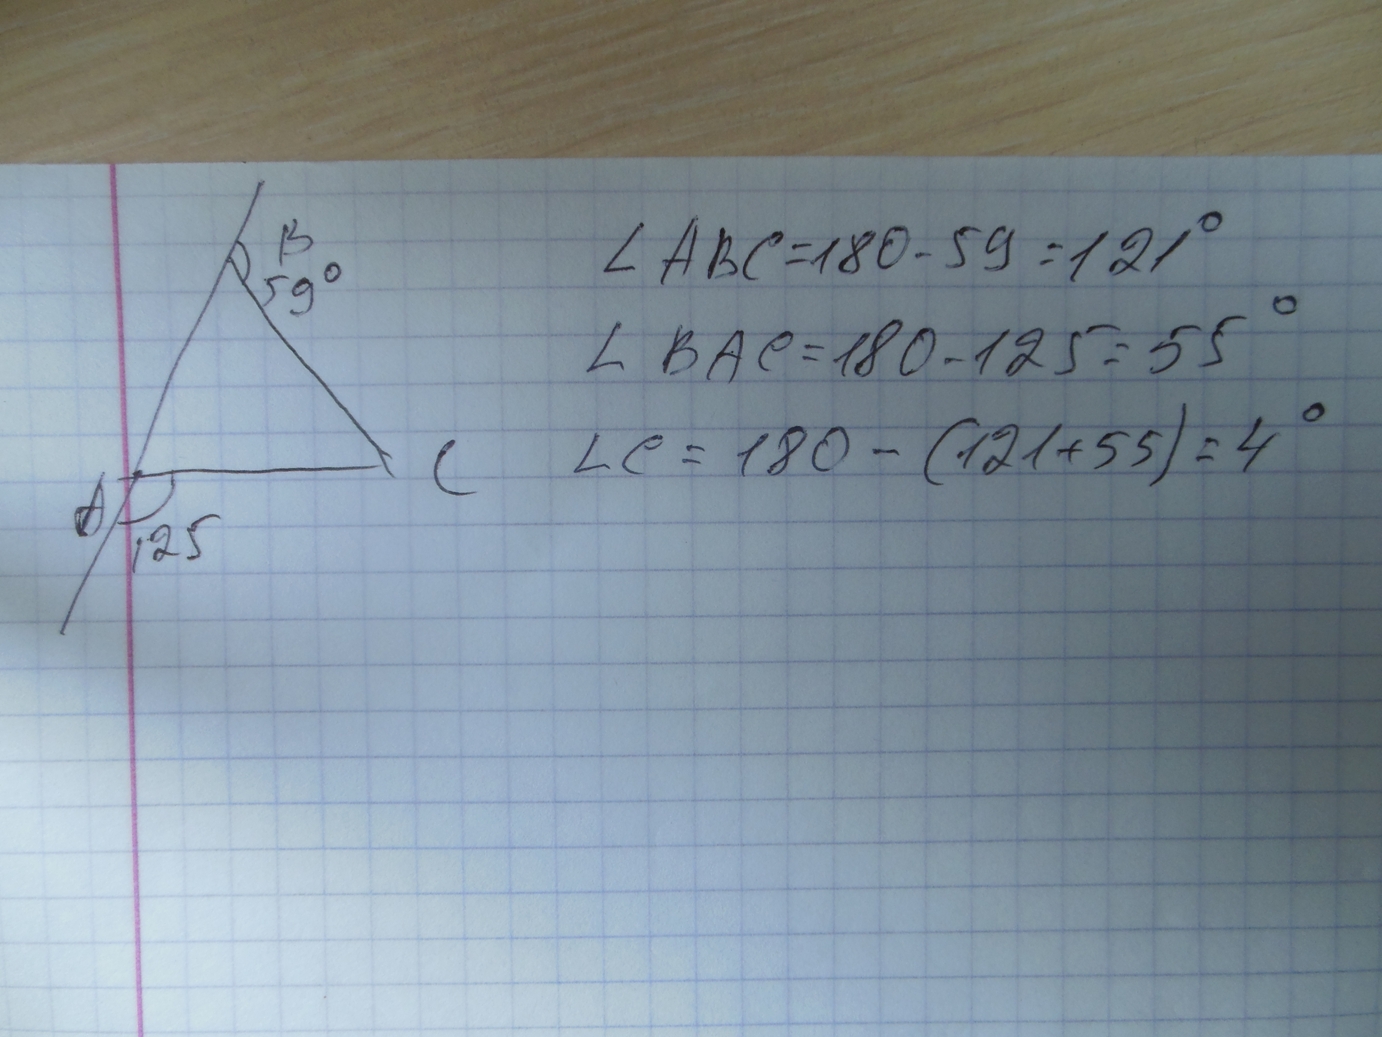 B
59°
A
125
C
∠ABC=180-59=121°
∠BAC=180-125=55°
∠C=180-(121+55)=4°